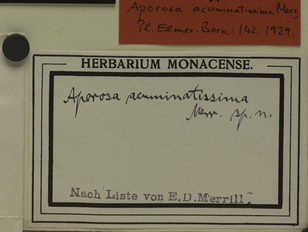 Aporosa acuminatissima Merr.
Pl. Elmer. Born.: 142. 1929.
HERBARIUM MONACENSE.
Aporosa acuminatissima
Merr. sp. n.
Nach Liste von E.D. Merrill.